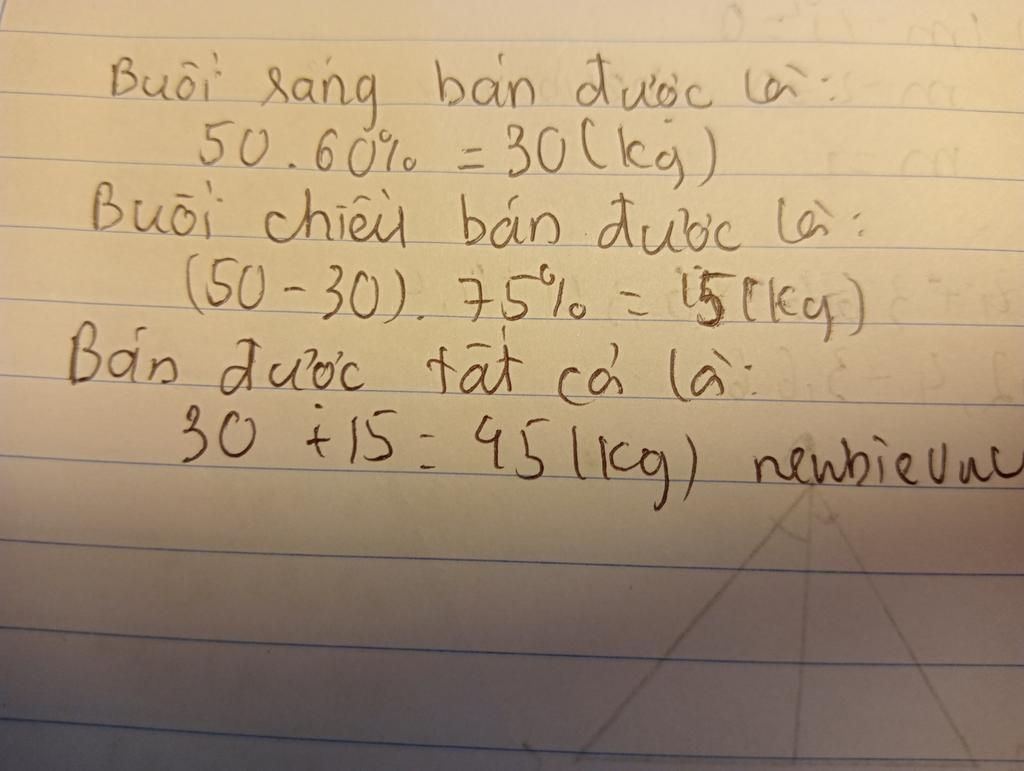 Buổi sáng bán được là:
50.60% = 30(kg)
Buổi chiều bán được là:
(50-30). 75% = 15(kg)
Bán được tất cả là:
30 + 15 = 45(kg) newbievnc